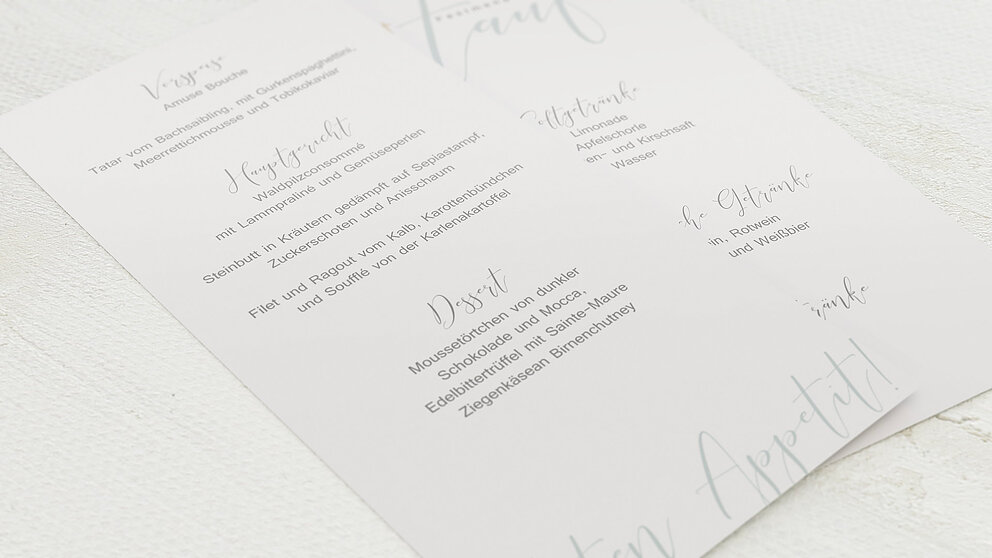 Vorspeise
Amuse Bouche
Tatar vom Bachsaibling, mit Gurkenspaghettini,
Meerrettichmousse und Tobikokaviar
Hauptgericht
Waldpilzconsommé
mit Lammpraliné und Gemüseperlen
Steinbutt in Kräutern gedämpft auf Sepiastampf,
Zuckerschoten und Anisschaum
Filet und Ragout vom Kalb, Karottenbündchen
und Soufflé von der Karlenakartoffel
Dessert
Moussetörtchen von dunkler
Schokolade und Mocca,
Edelbittertrüffel mit Sainte-Maure
Ziegenkäsean Birnenchutney
ten Appetit!
oftgetränke
Limonade
Apfelschorle
en- und Kirschsaft
Wasser
he Getränke
in, Rotwein
und Weißbier
ränke